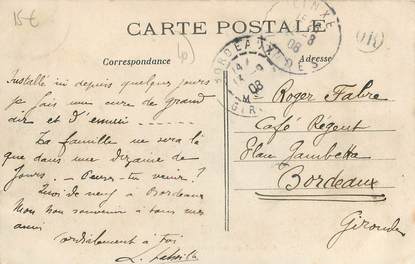 15€
CARTE POSTALE
Correspondance
Adresse
LINXE
08
BORDEAUX
08
GIR
Installé ici depuis quelques jours
je fais une cure de grand
air et d'ennui
La famille ne sera là
que dans une dizaine de
jours. Peux-tu venir ?
Quoi de neuf à Bordeaux
Mon bon souvenir à tous nos
amis
Cordialement à toi
Roger Fabre
Café Régent
Place Gambetta
Bordeaux
Gironde